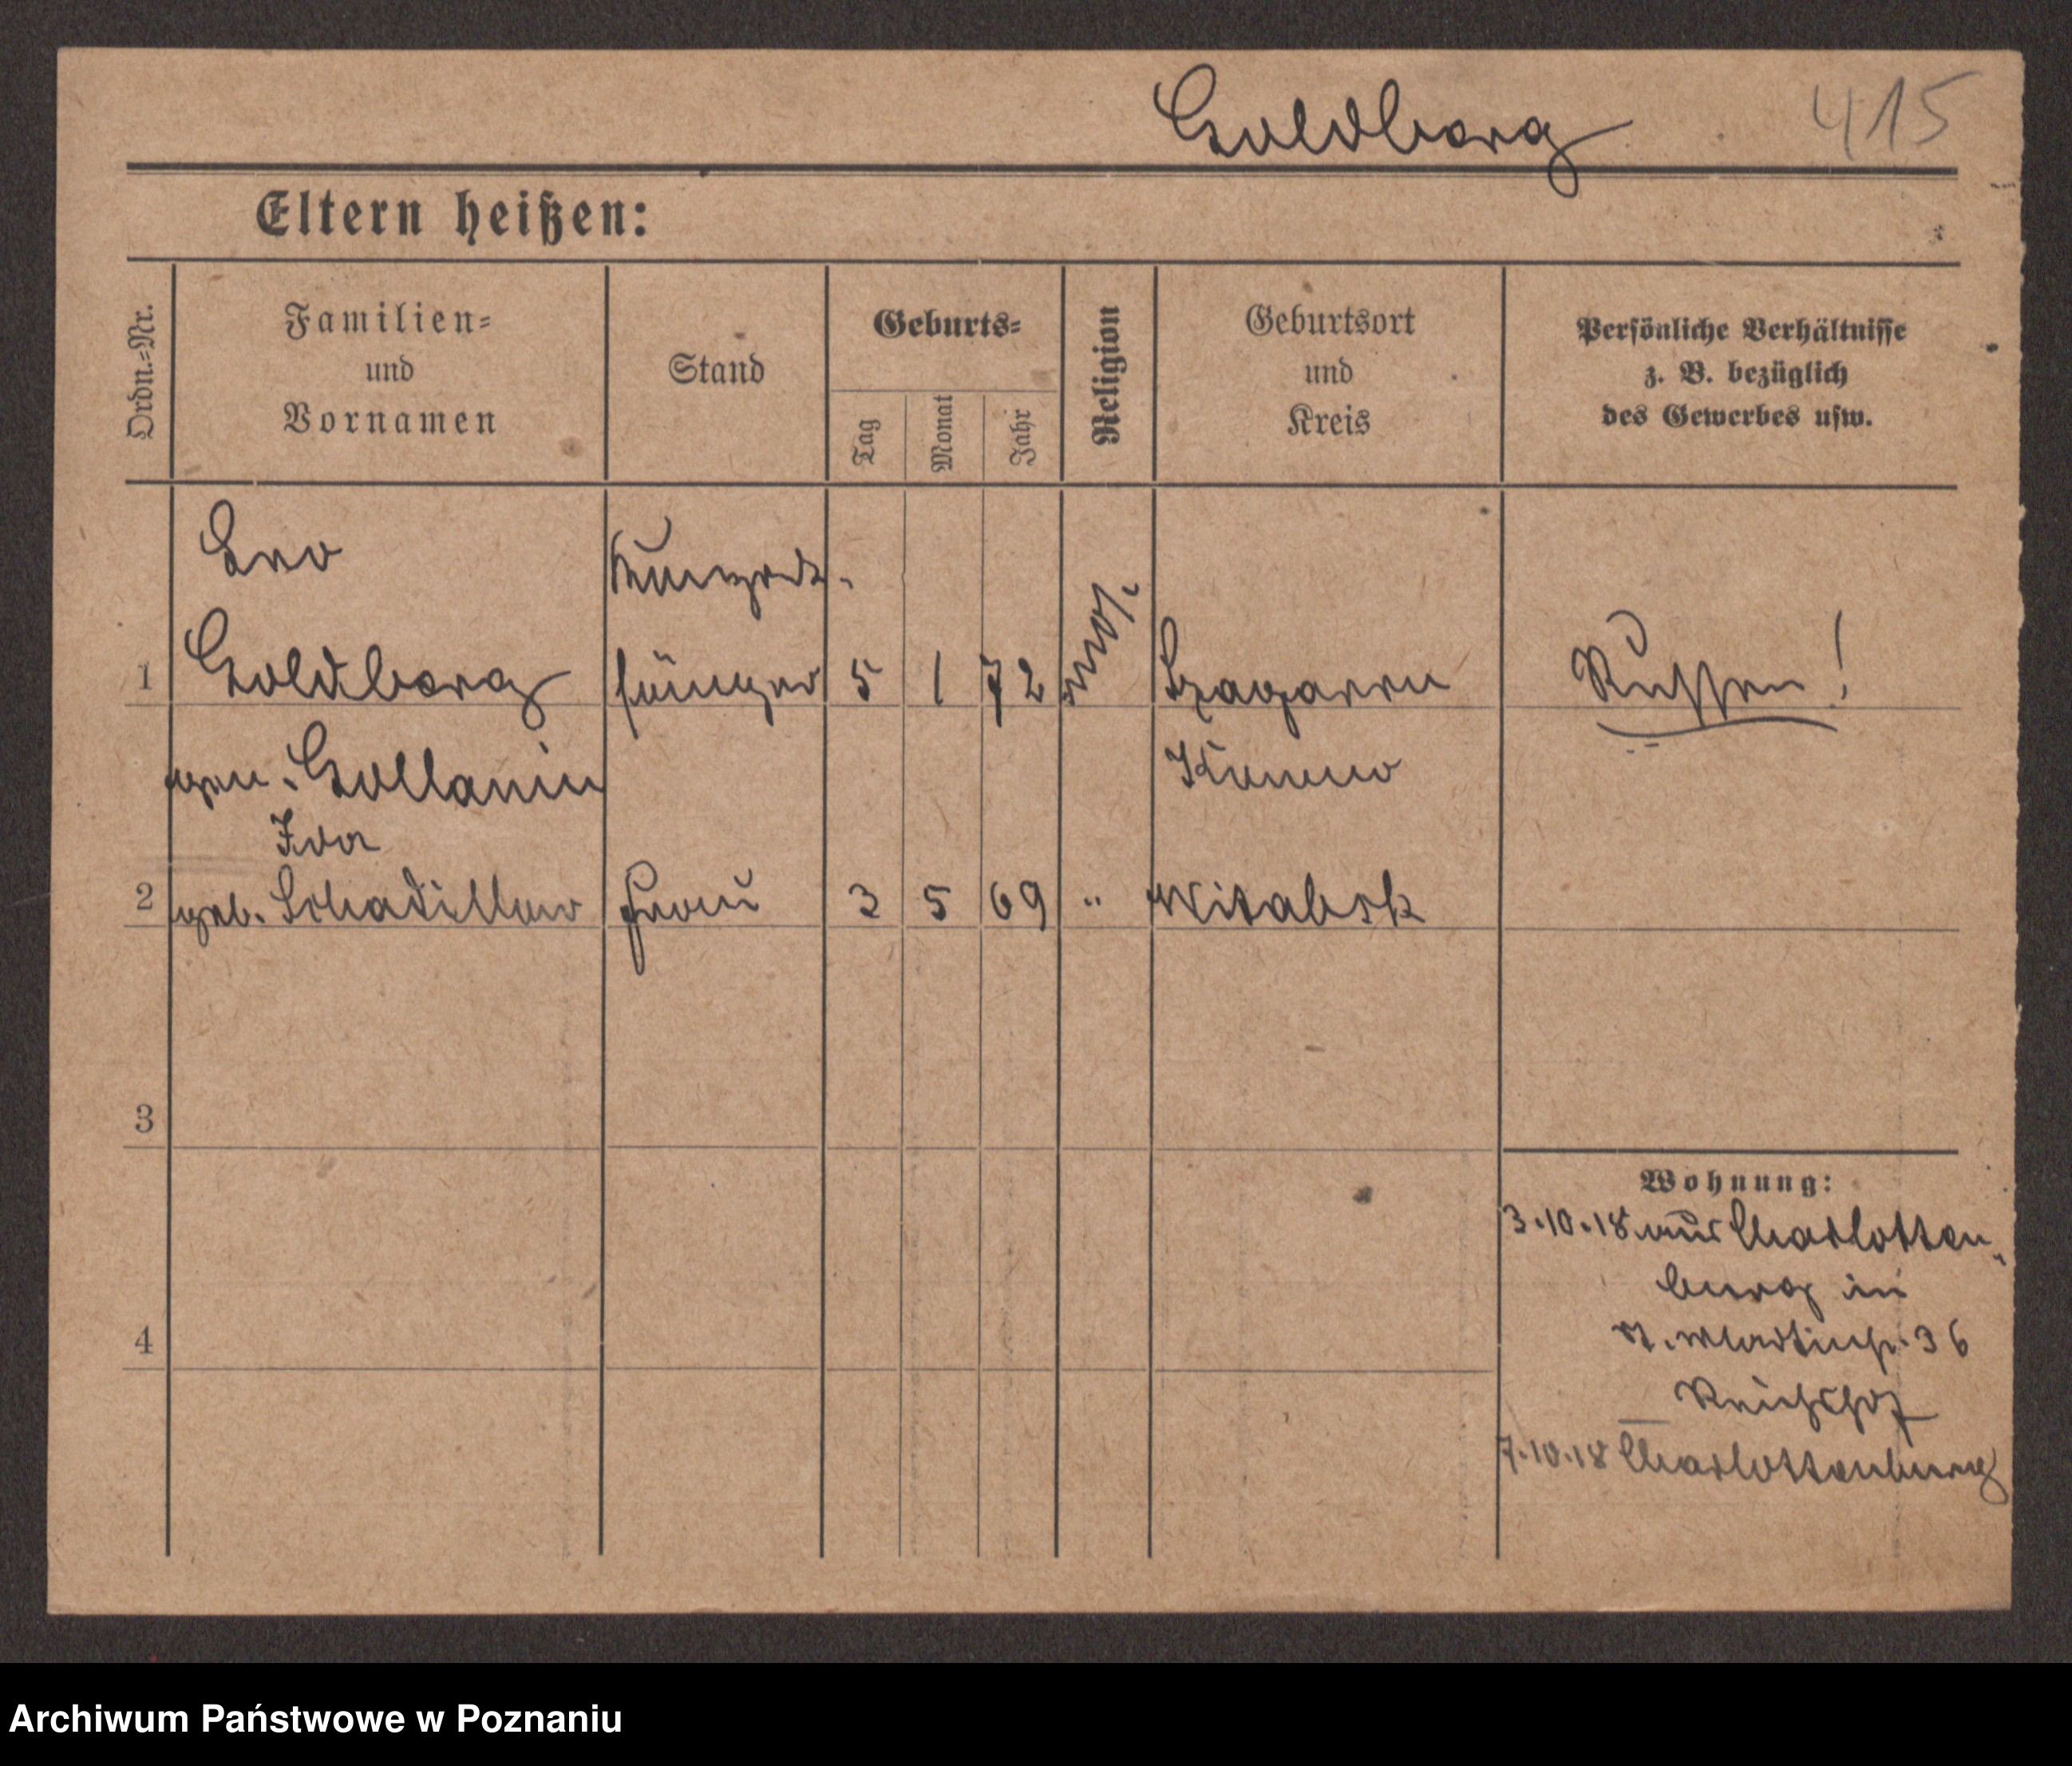 Goldberg 415
Eltern heißen:
Ordn.-Nr.
Familien-
und
Vornamen
Stand
Geburts-
Tag
Monat
Jahr
Religion
Geburtsort
und
Kreis
Persönliche Verhältnisse
z. B. bezüglich
des Gewerbes usw.
Leo
Konzert-
1 Goldberg sänger 5 1 72 mos. Szagarren Russen!
gen. Gollanin Kowno
Ida
2 geb. Schadillow Frau 3 5 69 " Witebsk
3
4
Wohnung:
3.10.18 aus Charlotten-
burg in
St. Martinstr. 36
Reichshof
7.10.18 Charlottenburg
Archiwum Państwowe w Poznaniu